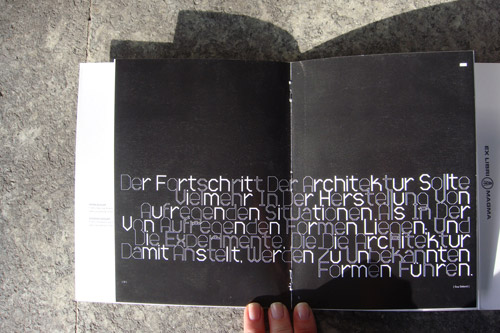 Der Fortschritt Der Architektur Sollte
Vielmehr In Der Herstellung Von
Aufregenden Situationen Als In Der
Von Aufregenden Formen Liegen, Und
Die Experimente, Die Die Architektur
Damit Anstellt, Werden Zu Unbekannten
Formen Führen.
EX LIBRI MAGMA